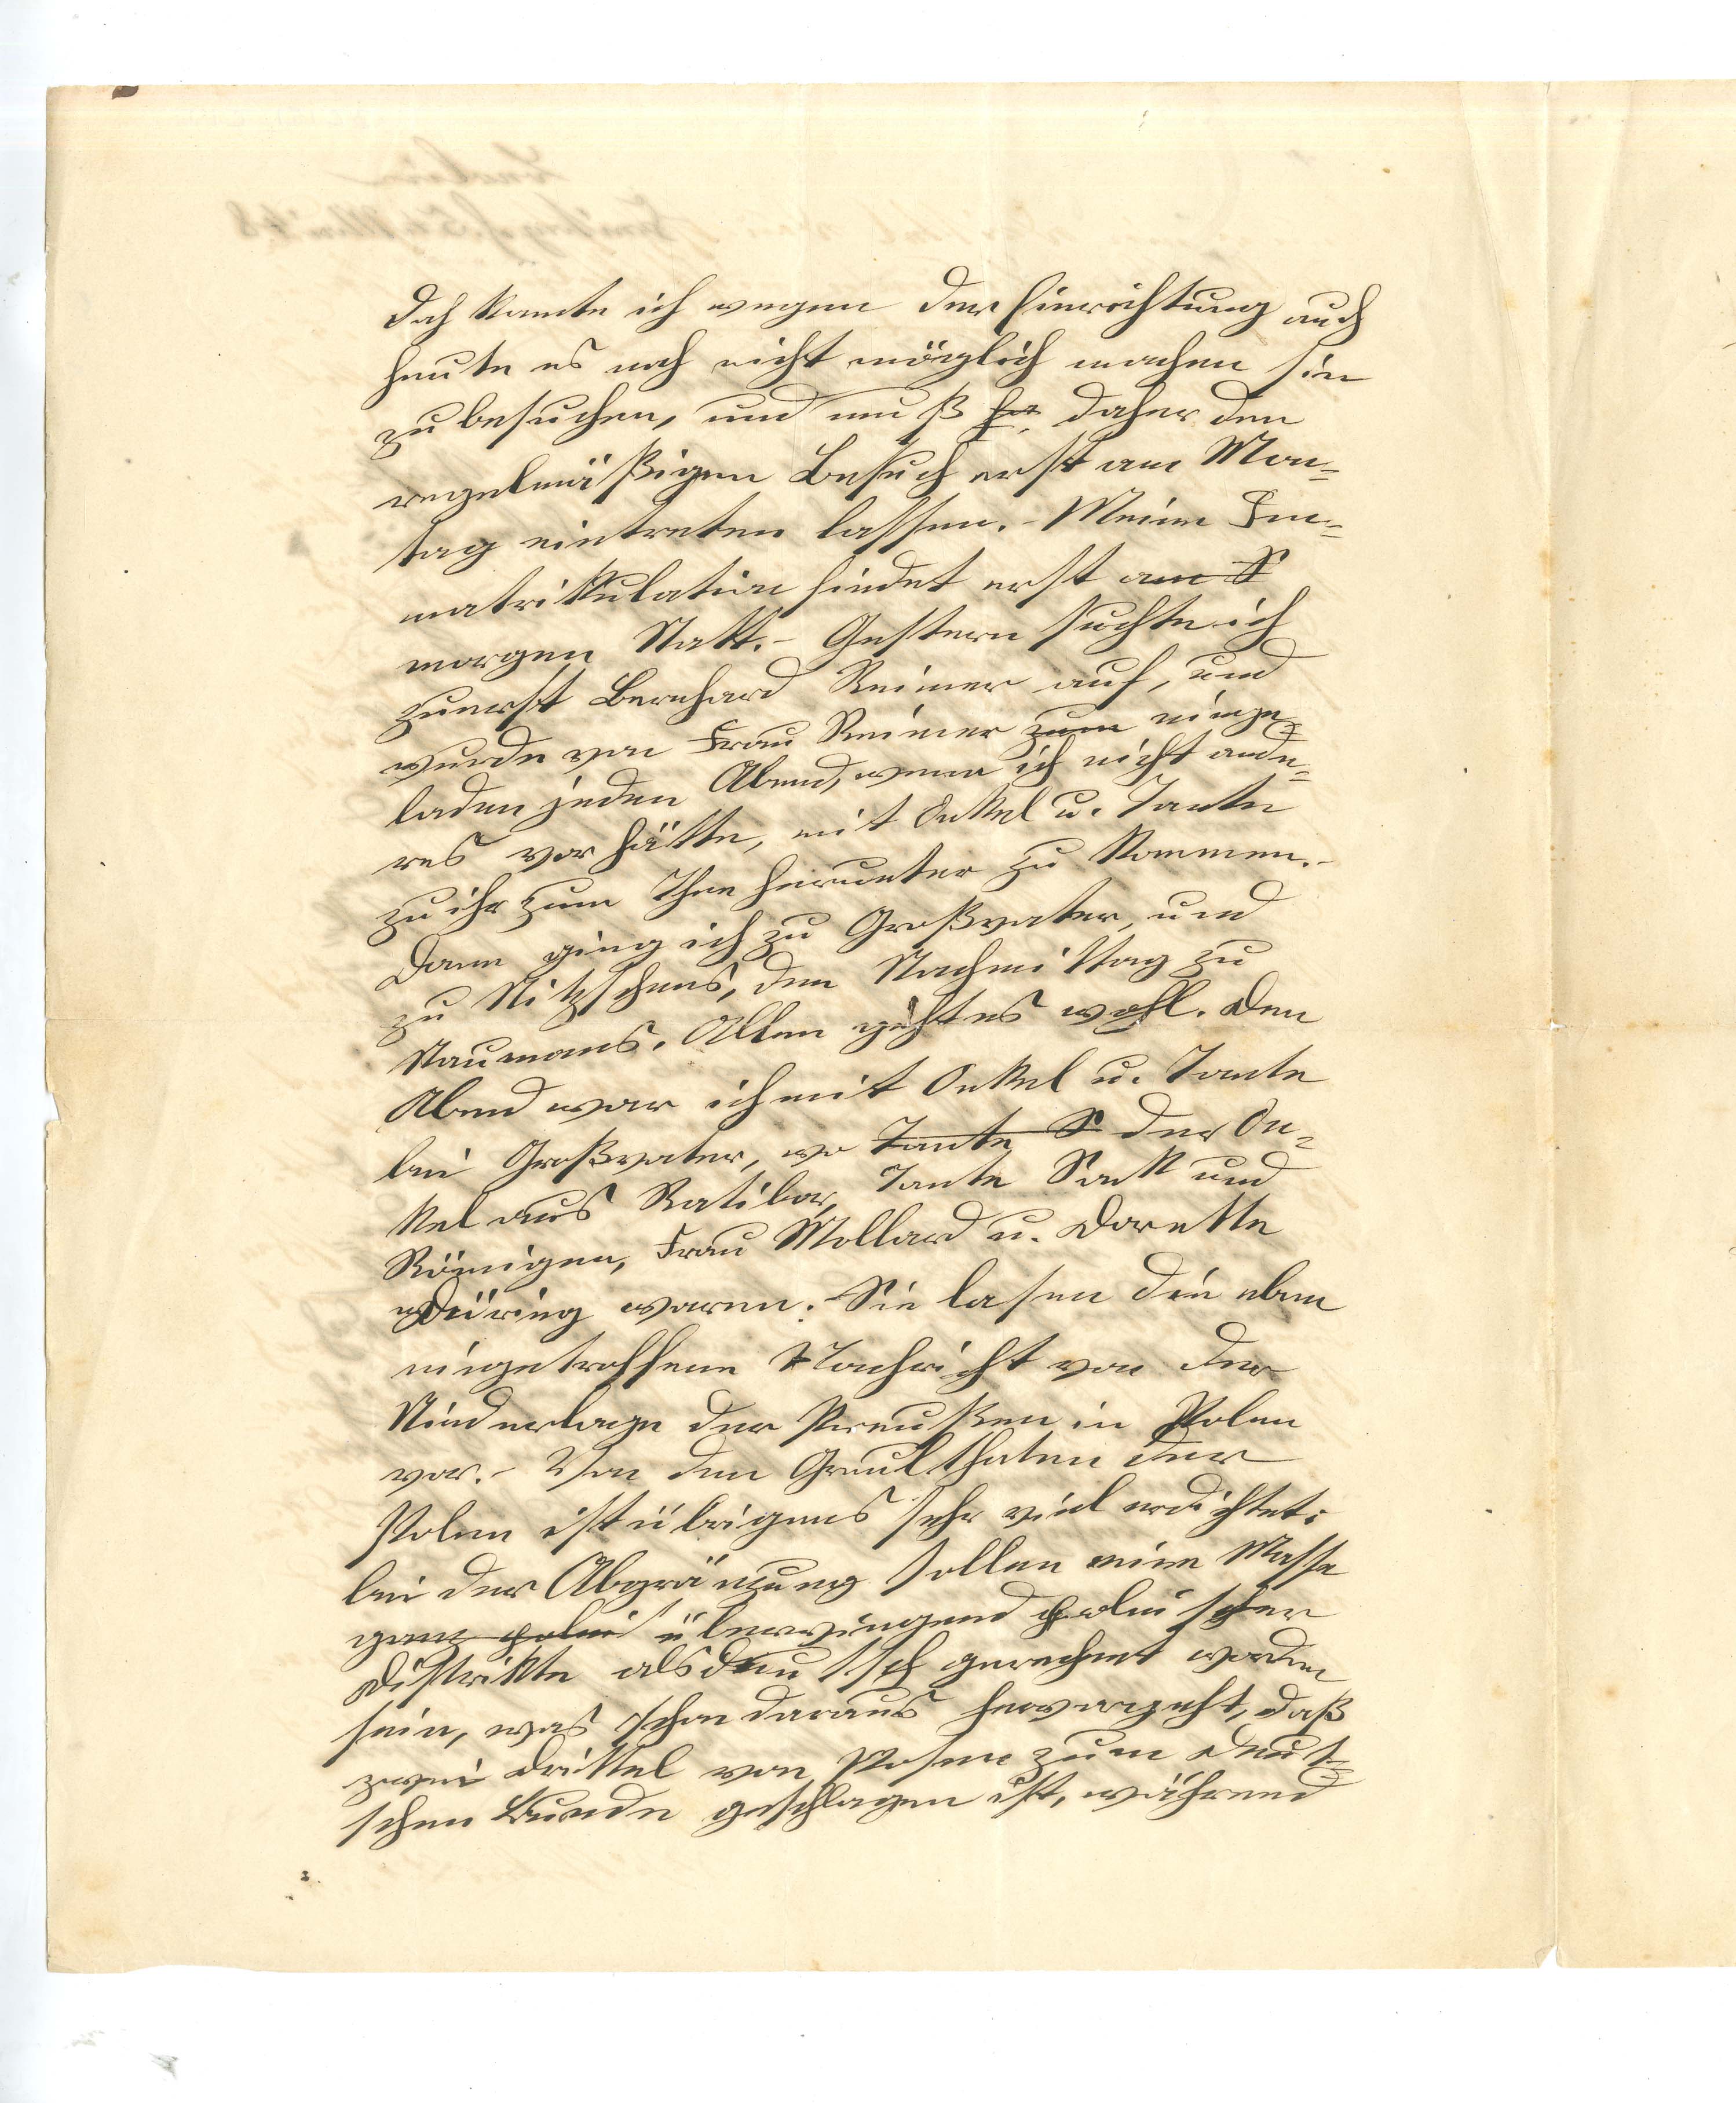 doch konnte ich wegen der Einrichtung auch
heute es noch nicht möglich machen sie
zu besuchen, und muß daher den
regelmäßigen Besuch erst am Mon=
tag eintreten lassen. – Meine Im=
matrikulation findet erst am S
morgen Statt. – Gestern suchte ich
zuerst Bernhard Reimer auf, und
wurde von Frau Reimer zum einge=
laden jeden Abend, wenn ich nicht ande=
res vor hätte, mit Onkel u. Tante
zu ihr zum Thee herunter zu kommen. –
Dann ging ich zu Großvater, und
zu Nitzschens, den Nachmittag zu
Naumans. Allen geht es wohl. Den
Abend war ich mit Onkel u. Tante
bei Großvater, wo Tante S der On=
kel aus Ratibor, Tante Sack und
Römigen, Frau Mollard u. Dorette
Düring waren. Sie lasen die eben
eingetroffene Nachricht von der
Niederlage der Preußen in Polen
vor. – Von den Greulthaten der
Polen ist übrigens sehr viel erdichtet:
bei der Abgränzung sollen eine Masse
ganz polni überwiegend polnischer
Distrikte als deutsch gerechnet worden
sein, was schon daraus hervorgeht, daß
zwei Drittel von Posen zum deut=
schen Bunde geschlagen ist, während